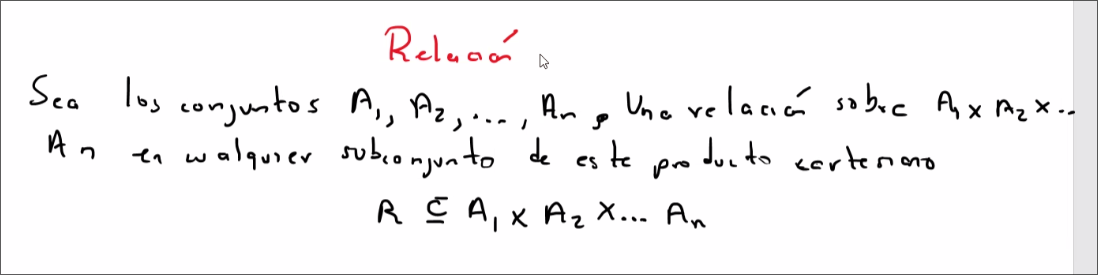 Relación
Sea los conjuntos A₁, A₂, ..., An, Una relación sobre A₁ x A₂ x ...
An en cualquier subconjunto de este producto cartesiano
R ⊆ A₁ x A₂ x ... An